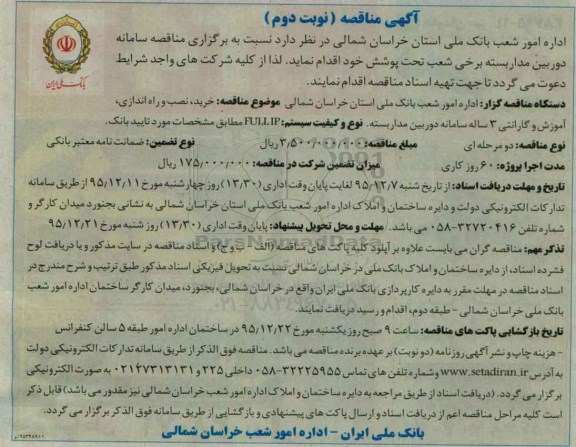 آگهی مناقصه (نوبت دوم)
اداره امور شعب بانک ملی استان خراسان شمالی در نظر دارد نسبت به برگزاری مناقصه سامانه
دوربین مداربسته برخی شعب تحت پوشش خود اقدام نماید. لذا از کلیه شرکت های واجد شرایط
دعوت می گردد تا جهت تهیه اسناد مناقصه اقدام نمایند.
دستگاه مناقصه گزار: اداره امور شعب بانک ملی استان خراسان شمالی موضوع مناقصه: خرید، نصب و راه اندازی،
آموزش و گارانتی ۳ ساله سامانه دوربین مداربسته. نوع و کیفیت سیستم: FULL IP مطابق مشخصات مورد تایید بانک.
نوع مناقصه: دو مرحله ای مبلغ مناقصه: ۳/۵۰۰/۰۰۰/۰۰۰ ریال نوع تضمین: ضمانت نامه معتبر بانکی
مدت اجرا پروژه: ۶۰ روز کاری میزان تضمین شرکت در مناقصه: ۱۷۵/۰۰۰/۰۰۰ ریال
تاریخ و مهلت دریافت اسناد: از تاریخ شنبه ۹۵/۱۲/۷ لغایت پایان وقت اداری (۱۳/۳۰) روز چهارشنبه مورخ ۹۵/۱۲/۱۱ از طریق سامانه
تدارکات الکترونیکی دولت و دایره ساختمان و املاک اداره امور شعب بانک ملی استان خراسان شمالی به نشانی بجنورد میدان کارگر و
شماره تلفن ۳۲۷۲۰۴۱۶-۰۵۸ می باشد. مهلت و محل تحویل پیشنهاد: پایان وقت اداری (۱۳/۳۰) روز شنبه مورخ ۹۵/۱۲/۲۱
تذکر مهم: مناقصه گران می بایست علاوه بر آپلود کلیه پاکت های مناقصه (الف و ج) و اسناد مناقصه در سایت مذکور و یا دریافت لوح
فشرده اسناد، از دایره ساختمان و املاک بانک ملی در خراسان شمالی نسبت به تحویل فیزیکی اسناد مذکور طبق ترتیب و شرح مندرج در
اسناد مناقصه در مهلت مقرر به دایره کارپردازی بانک ملی ایران واقع در خراسان شمالی، بجنورد، میدان کارگر ساختمان اداره امور شعب
بانک ملی خراسان شمالی - طبقه دوم، اقدام و رسید دریافت نمایند.
تاریخ بازگشایی پاکت های مناقصه: ساعت ۹ صبح روز یکشنبه مورخ ۹۵/۱۲/۲۲ در ساختمان اداره امور طبقه ۵ سالن کنفرانس
- هزینه چاپ و نشر آگهی روزنامه (دو نوبت) بر عهده برنده مناقصه می باشد. مناقصه فوق الذکر از طریق سامانه تدارکات الکترونیکی دولت
به آدرس www.setadiran.ir و شماره تلفن های تماس ۳۲۲۲۵۹۵۵-۰۵۸ داخلی ۲۲۵ و ۰۲۱۶۷۳۱۳۱۳۱ به صورت الکترونیکی
برگزار می گردد. (دریافت اسناد از طریق مراجعه به دایره ساختمان و املاک اداره امور شعب خراسان شمالی نیز مقدور می باشد) قابل ذکر
است کلیه مراحل مناقصه اعم از دریافت اسناد و ارسال پاکت های پیشنهادی و بازگشایی از طریق سامانه فوق الذکر برگزار می گردد.
بانک ملی ایران - اداره امور شعب خراسان شمالی
بانک ملی ایران